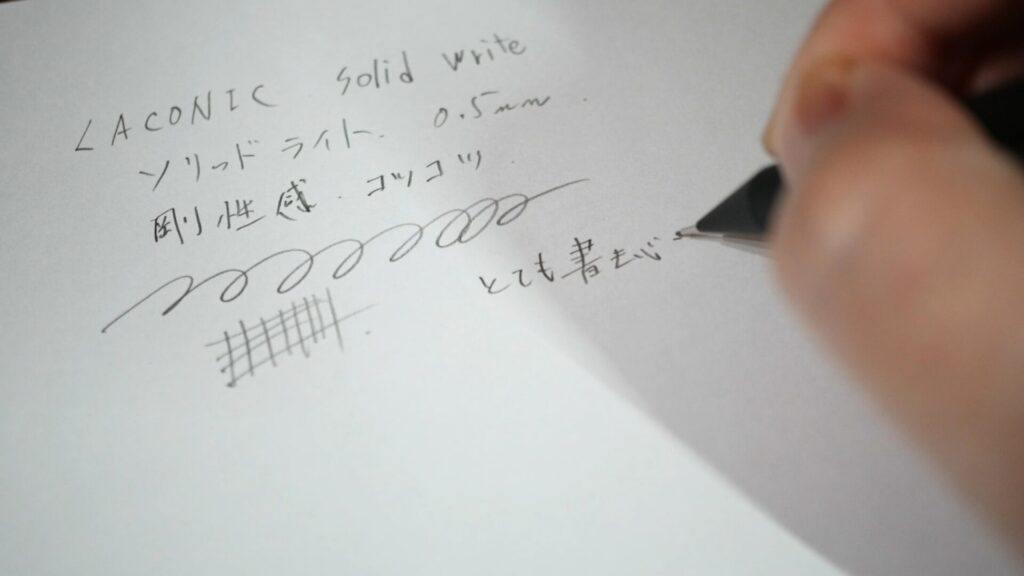 LACONIC solid write
ソリッドライト. 0.5mm.
剛性感. コツコツ.
とても書き心